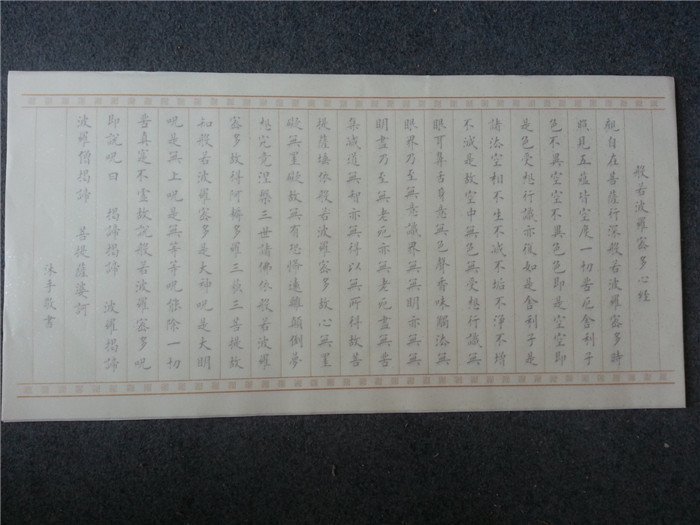 般若波羅蜜多心經
觀自在菩薩行深般若波羅蜜多時
照見五蘊皆空度一切苦厄舍利子
色不異空空不異色色即是空空即
是色受想行識亦復如是舍利子是
諸法空相不生不滅不垢不淨不增
不減是故空中無色無受想行識無
眼耳鼻舌身意無色聲香味觸法無
眼界乃至無意識界無無明亦無無
明盡乃至無老死亦無老死盡無苦
集滅道無智亦無得以無所得故菩
提薩埵依般若波羅蜜多故心無罣
礙無罣礙故無有恐怖遠離顛倒夢
想究竟涅槃三世諸佛依般若波羅
蜜多故得阿耨多羅三藐三菩提故
知般若波羅蜜多是大神呪是大明
呪是無上呪是無等等呪能除一切
苦真實不虛故說般若波羅蜜多呪
即說呪曰 揭諦揭諦 波羅揭諦
波羅僧揭諦 菩提薩婆訶
沐手敬書